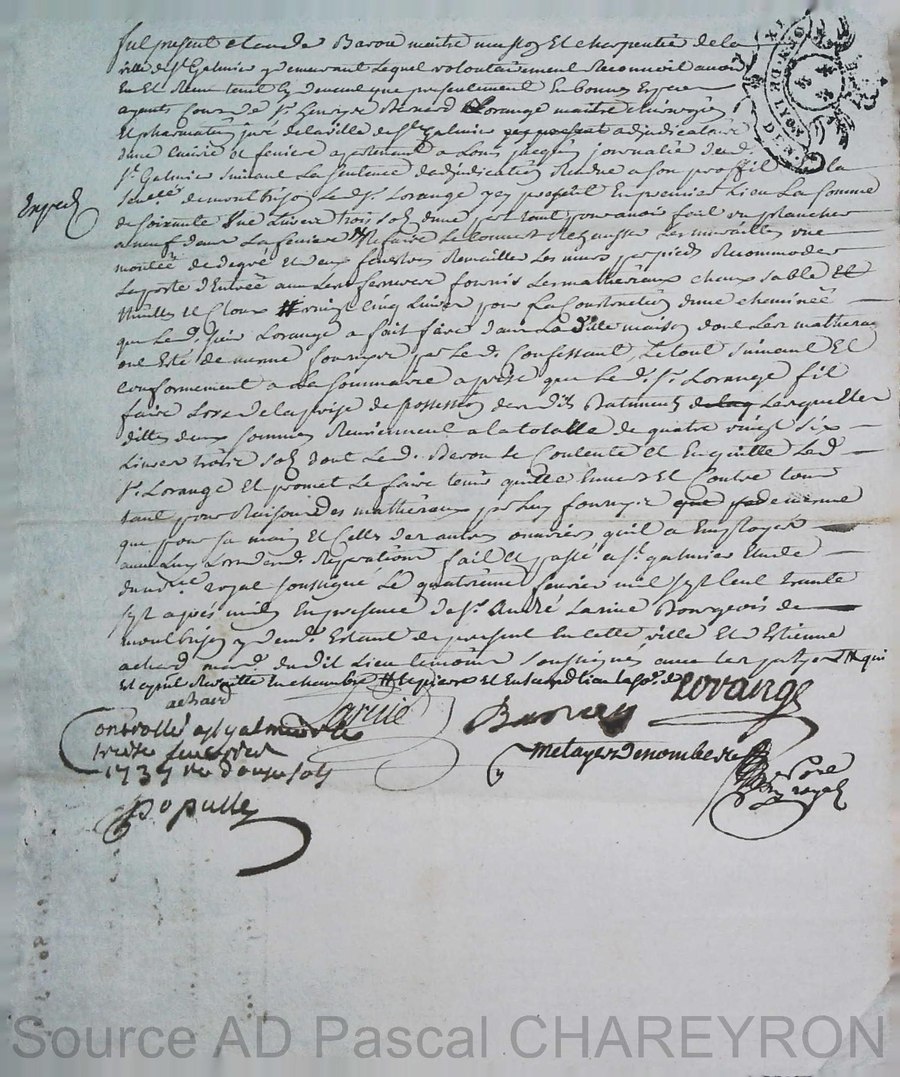 fut present claude Barou maitre masson Et charpentié de la
ville de St. Galmier y demeurant Lequel volontairement Reconneit avoir
Eu Et Receu tant cy devant que presentement En bonnes Espece
ayants Cours de Sr. Lorange maitre chirurgien
Et pharmatien juré de la ville de St. galmier yey present adjudicataire
dune Cuirie et feniere apartenant a Louis journalié dud.
St. Galmier suivant La sentence dadjudication Rendue a son proffit la
Senéé. de montbrison Led. Sr. Lorange yey present En premier Lieu La somme
Exped.
de soixante Une Livres trois sols dune part tant pour avoir fait un plancher
a neuf dans La feniere Refaire Le Les murailles une
montée de degré Et deux fenestres Remailler Les murs par pieds Recommoder
La porte d'Entrée avec Les ferrures fournis Les matheriaux chaux sable Et
thuilles Et Cloux # vingt Cinq Livres pour La Construction dune cheminée
que Led. Sieur Lorange a fait faire dans La d. maison dont Les matheriaux
ont Esté de meme fournys par Led. Confessant, Le tout suivant Et
Conformement a La sommaire aprise que Led. Sr. Lorange fit
faire Lors de la prise de possession desdits Batiments Lesquelles
dittes deux sommes Reviennent a la totalle de quatre vingt six
Livres trois sols dont Led. Barou se Contente et En quitte Led.
Sr. Lorange Et promet Le faire tenir quitte Envers Et Contre tous
tant pour Raison des matheriaux par Luy fournys que de meme
que pour sa main Et Celles des autres ouvriers quil a Employés
avec Luy Lors desd. Reparations fait Et passé a St. galmier Etude
du no.re royal soussigné Le quatrieme fevrier mil sept Cent trente
sept apres midy En presence de Sr. André Larue Bourgeois de
montbrison y dem.t Estant de present En cette ville Et d'Estienne
achard mar.d dudit Lieu temoins soussignés avec Les partyes #
achard
Larue
Barou
Lorange
Controllé a St galmier le
treize fevrier
1737 reçu douze sols
Populle
metayer Denombre
no.re
royal
Source AD Pascal CHAREYRON